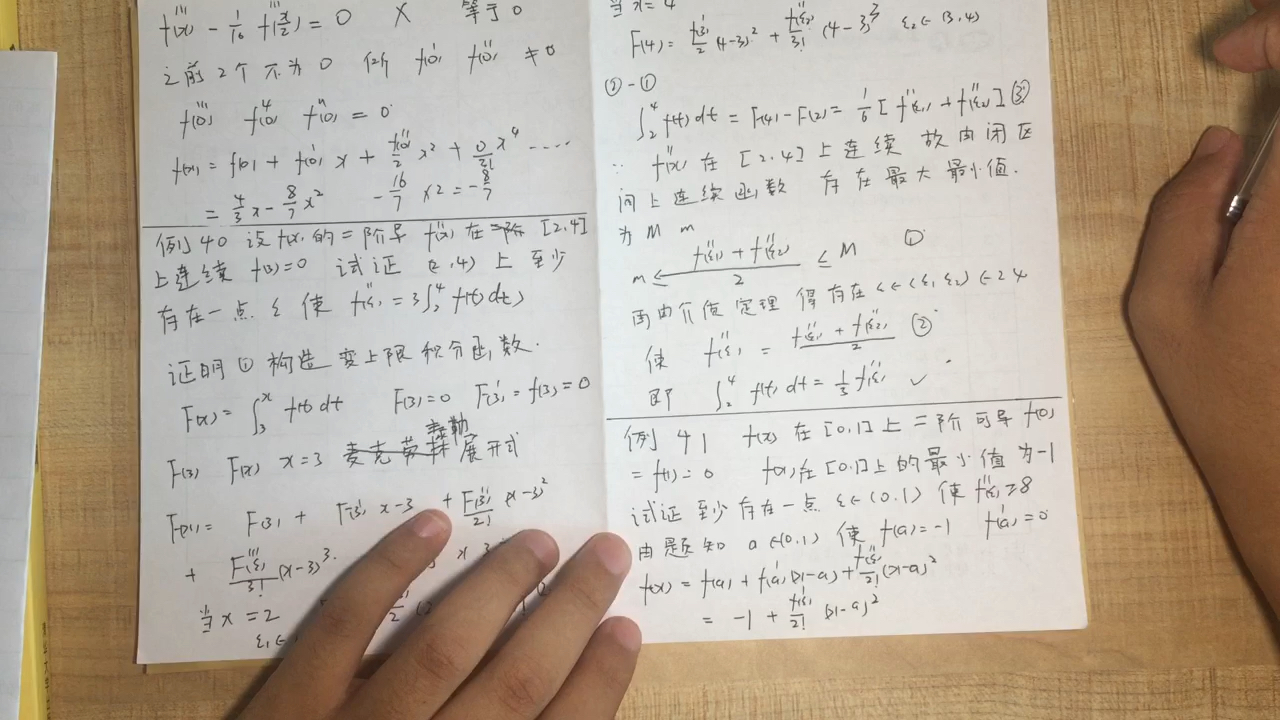 f'''(x) - 1/16 f'''(x/2) = 0 X 等于0
之前2个不为0 所 f'(0) f''(0) ≠0
f'''(0) f⁴(0) fⁿ(0) = 0
f(x) = f(0) + f'(0) x + f''(0)/2 x² + 0/3! x⁴ ....
= 4/3 x - 8/7 x² - 16/7 ×2 = - 8/7
例40 设f(x)的二阶导 f''(x) 在 [2.4]
上连续 f(3)=0 试证 (2,4) 上至少
存在一点 ξ 使 f''(ξ) = 3∫₂⁴ f(t) dt
证明① 构造变上限积分函数.
F(x) = ∫₃ˣ f(t) dt F(3)=0 F'(3) = f(3) = 0
F(3) F(x) x=3 泰勒展开式
F(x) = F(3) + F'(3) x-3 + F''(3)/2! (x-3)²
+ F'''(ξ)/3! (x-3)³.
当x=2
ξ₁∈
当x=4
F(4) = f'(3)/2 (4-3)² + f''(ξ₂)/3! (4-3)³ ξ₂∈(3,4)
②-①
∫₂⁴ f(t) dt = F(4) - F(2) = 1/6 [f''(ξ₁) + f''(ξ₂)] ③
∵ f''(x) 在 [2.4] 上连续 故由闭区
间上连续函数 存在最大最小值.
为 M m
m ≤ f''(ξ₁) + f''(ξ₂)/2 ≤ M ①
再由介值定理 得存在 ξ∈(ξ₁ ξ₂) ∈ 2 4
使 f''(ξ) = f''(ξ₁) + f''(ξ₂)/2 ②
即 ∫₂⁴ f(t) dt = 1/3 f''(ξ) ✓
例41 f(x) 在 [0.1] 上二阶可导 f(0)
= f(1) = 0 f(x)在[0.1]上的最小值为-1
试证至少存在一点 ξ∈(0.1) 使 f''(ξ) ≥8
由题知 a∈(0.1) 使 f(a) = -1 f'(a) = 0
f(x) = f(a) + f'(a)(x-a) + f''(ξ)/2! (x-a)²
= -1 + f''(ξ)/2! (x-a)²